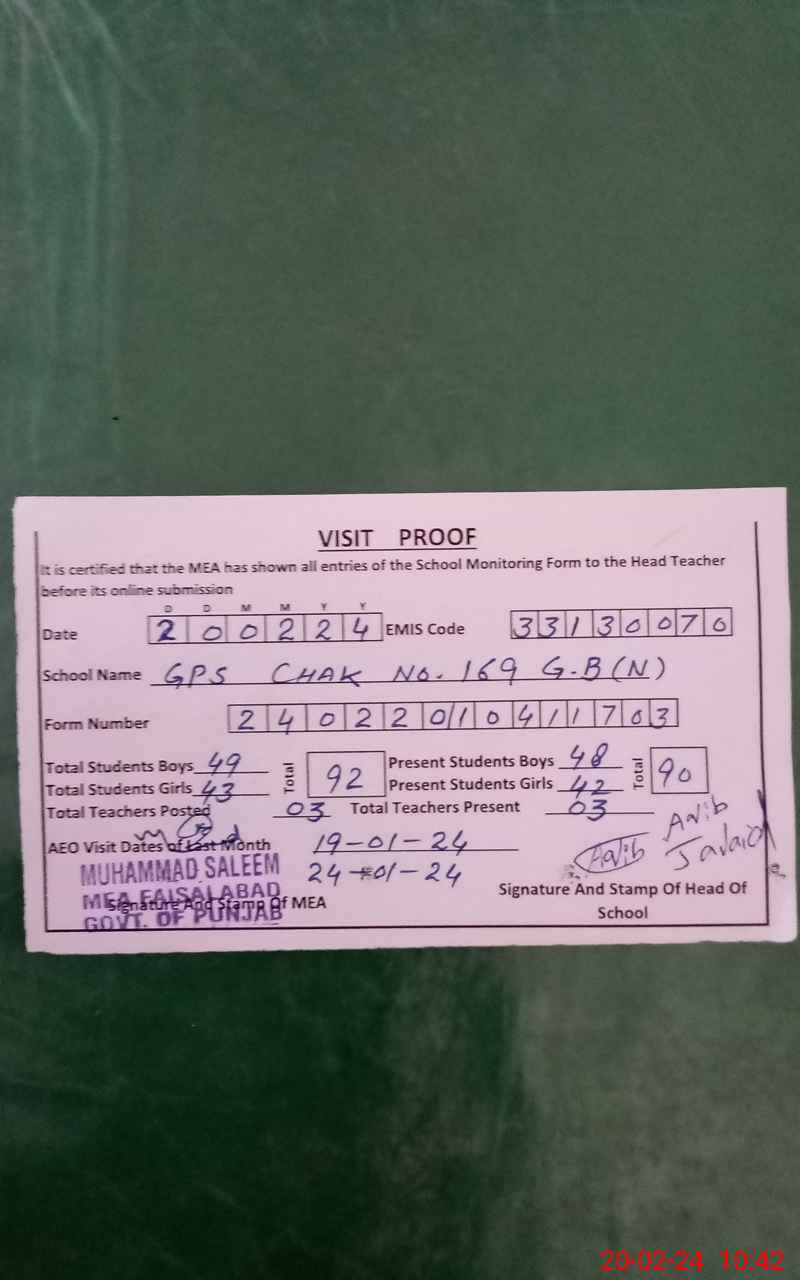 VISIT PROOF
It is certified that the MEA has shown all entries of the School Monitoring Form to the Head Teacher
before its online submission
D D M M Y Y
Date 2 0 0 2 2 4 EMIS Code 3 3 1 3 0 0 7 0
School Name GPS CHAK No. 169 G-B(N)
Form Number 2 4 0 2 2 0 1 0 4 1 1 7 0 3
Total Students Boys 49 Total 92 Present Students Boys 48 Total 90
Total Students Girls 43 Present Students Girls 42
Total Teachers Posted 03 Total Teachers Present 03
AEO Visit Dates of Last Month 19-01-24
24-01-24
MUHAMMAD SALEEM
MEA FAISALABAD
GOVT. OF PUNJAB
Signature And Stamp Of MEA
Adib
Adib
Javaid
Signature And Stamp Of Head Of
School
20-02-24 10:42